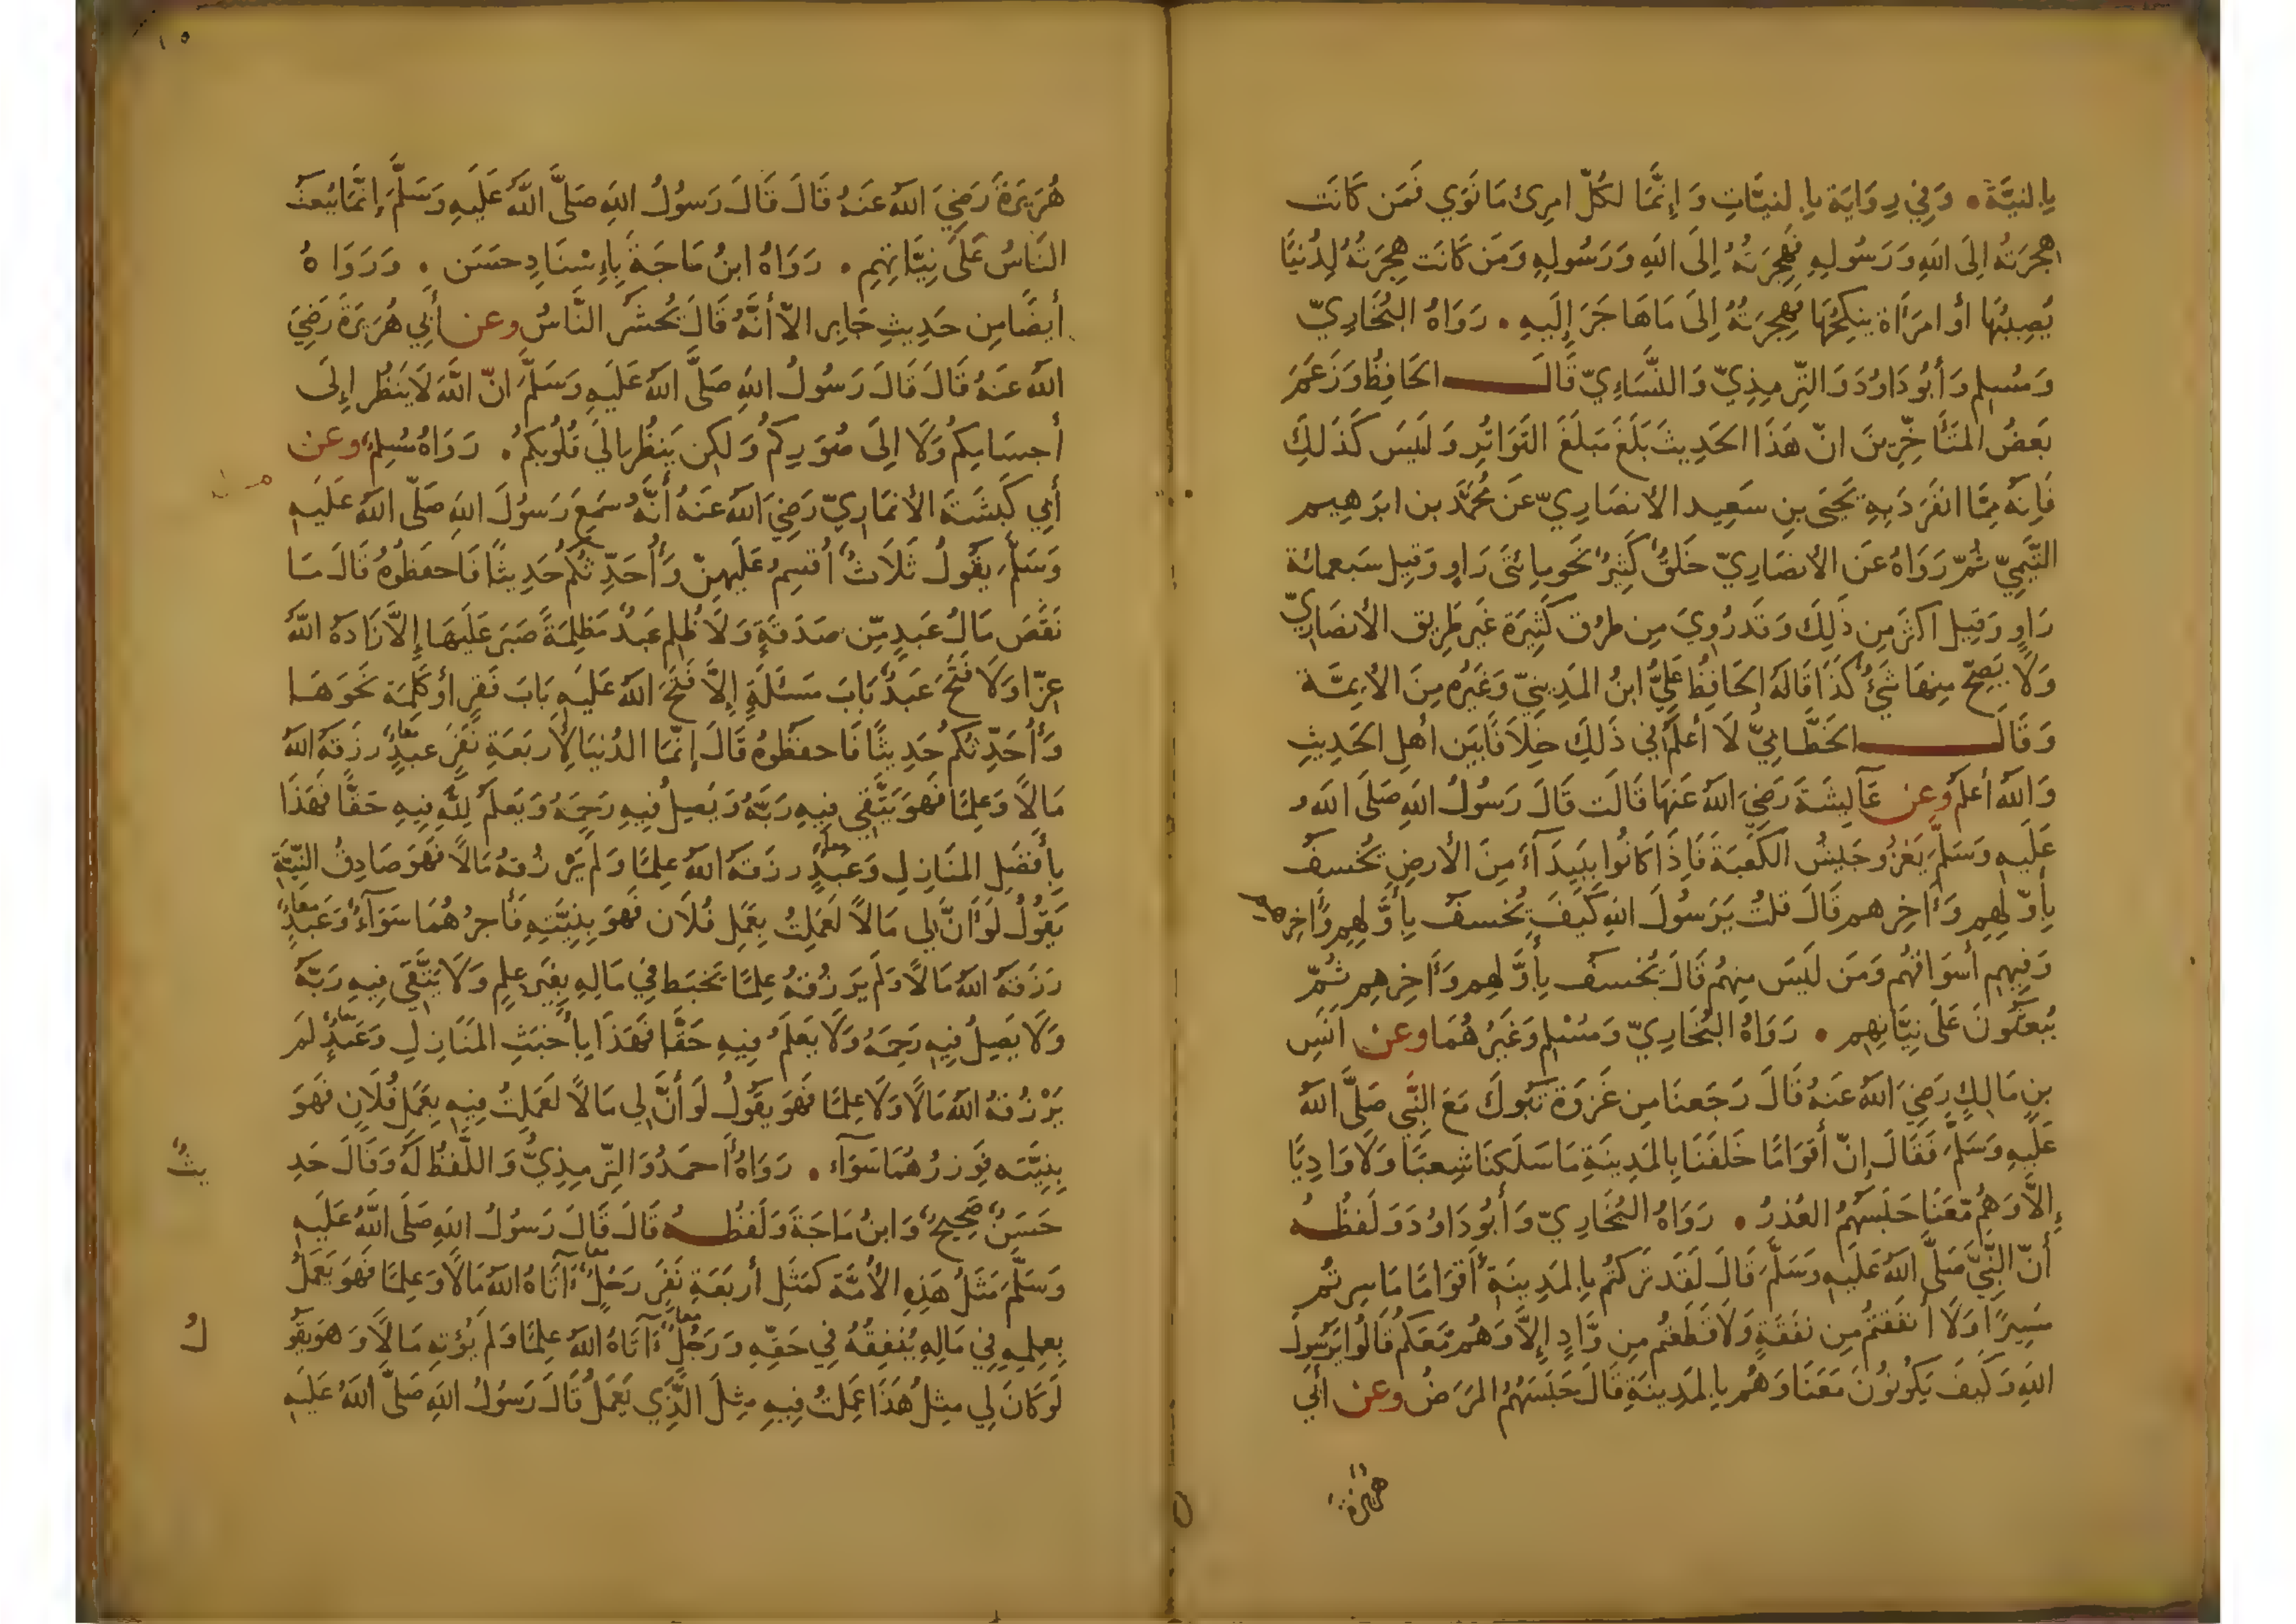 بِالنيَّةِ. وَفِي رِوَايَة بِالنيَّاتِ وَإِنَّمَا لكُلّ امرِئ مَا نَوَي فَمَن كَانَت
هِجرَتُه اِلَى اللَّهِ وَرَسُولِهِ فَهِجرَتُهُ اِلَى اللَّهِ وَرَسُولِهِ وَمَن كَانَت هِجرَتُهُ لِدُنيَا
يُصِيبُهَا أَو امرَأَة يَنكِحُهَا فَهِجرَتُهُ اِلَى مَا هَاجَرَ إِلَيهِ. رَوَاهُ البُخَارِيّ
وَمُسلِم وَأَبُو دَاوُدَ وَالتِّرمِذِيّ وَالنَّسَاءِيّ قَالَ الحَافِظُ وَزَعَمَ
بَعضُ المتَأَخِّرِينَ انّ هَذَا الحَدِيثَ بَلَغَ مَبلَغَ التَوَاتُرِ وَلَيسَ كَذَلِكَ
فَاِنَّه مِمَّا انفَرَدَ بِهِ يَحيَى بنِ سَعِيد الأنصَارِيّ عَن مُحَمَّد بن ابرَهِيم
التَّيمِيّ ثُمّ رَوَاهُ عَن الأنصَارِيّ خَلقٌ كَثِيرٌ نَحو مِائتَى رَاوٍ وَقِيل سَبعمائة
رَاوٍ وَقِيل اكثَر مِن ذَلِكَ وَقَد رُوِيَ مِن طرُق كَثِيرَة غَيرَ طَرِيق الأنصَارِيّ
وَلَا يَصِحّ مِنهَا شَيٌ كَذَا قَالَهُ الحَافِظُ عَلِيُّ ابنُ المَدِينِيّ وَغَيرُه مِنَ الأيِمَّة
وَقَالَ الخَطَّابِيُّ لَا أَعلَمُ فِي ذَلِكَ خِلَافًا بَين اَهلِ الحَدِيثِ
وَاللَّهُ أَعلَم وعن عَآيِشَةَ رَضِيَ اللَّهُ عَنهَا قَالَت قَالَ رَسُولُ اللَّهِ صَلَّى اللَّهُ
عَلَيهِ وَسَلَّمَ يَغزُو جَيشُ الكَعبَةَ فَاِذَا كَانُوا بِبَيدَآءَ مِنَ الأرضِ يُخسَفُ
بِأَوّلهِم وَءَاخِرهم قَالَ قلتُ يَرَسُولَ اللَّهِ كَيفَ يُخسَفُ بِأَوَّلهِم وَءَاخِرِهِم
وَفِيهِم أَسوَاقهُم وَمَن لَيسَ مِنهُم قَالَ يُخسَفُ بِأَوَّلهِم وَءَاخِرِهِم ثُمّ
يُبعَثُونَ عَلَى نِيَّاتِهِم. رَوَاهُ البُخَارِيّ وَمُسْلِم وَغَيرُ هُمَا وعن انَسِ
بنِ مَالِكٍ رَضِيَ اللَّهُ عَنهُ قَالَ رَجَعنَا مِن غَزوَة تَبُوكَ مَعَ النَّبِي صَلَّى اللَّهُ
عَلَيهِ وَسَلَّمَ فَقَالَ إِنّ أَقوَامًا خَلفَنَا بِالمَدِينَةِ مَا سَلَكنَا شِعبًا وَلَا وَادِيًا
إِلَّا وَهُم مَّعَنَا حَبَسَهُمُ العُذرُ. رَوَاهُ البُخَارِيّ وَأَبُو دَاوُدَ وَلَفظُهُ
أَنّ النَّبِيَّ صَلَّى اللَّهُ عَلَيهِ وَسَلَّمَ قَالَ لَقَد تَركتُم بِالمَدِينَةِ أَقوَامًا مَا سِرتُم
مَسِيرًا وَلَا أَنفَقتُم مِن نفَقَةٍ وَلَا قَطَعتُم مِن وَّادٍ إِلَّا وَهُم مَّعَكُم قَالُوا يَرَسُولَ
اللَّهِ وَكَيفَ يَكُونُونَ مَعَنَا وَهُم بِالمَدِينَةِ قَالَ حَبَسَهُمُ المَرَضُ وعن أَبِي
هريرة
١٥
هُرَيرَةَ رَضِيَ اللَّهُ عَنهُ قَالَ قَالَ رَسُولُ اللَّهِ صَلَّى اللَّهُ عَلَيهِ وَسَلَّمَ إِنَّمَا يُبعَثُ
النَاسُ عَلَى نِيَّاتِهِم. رَوَاهُ ابنُ مَاجَة بِإِسْنَادٍ حَسَن. وَرَوَاهُ
أَيضًا مِن حَدِيثِ جَابِر الاّ أَنَّهُ قَالَ يُحشَر النَّاسُ وعن أَبِي هُرَيرَةَ رَضِيَ
اللَّهُ عَنهُ قَالَ قَالَ رَسُولُ اللَّهِ صَلَّى اللَّهُ عَلَيهِ وَسَلَّمَ انّ اللَّهَ لَا يَنظُر إِلَى
أَجسَامِكُم وَلَا اِلَى صُوَرِكُم وَلَكِن يَنظُر اِلَى قُلُوبِكُم. رَوَاهُ مُسلِم وعن
أَبِي كَبشَةَ الأنمَارِيّ رَضِيَ اللَّهُ عَنهُ أَنَّهُ سَمِعَ رَسُولَ اللَّهِ صَلَّى اللَّهُ عَلَيهِ
وَسَلَّمَ يَقُولُ ثَلَاثٌ أُقسِمُ عَلَيهِنّ وَأُحَدِّثُكُم حَدِيثًا فَاحفَظُوهُ قَالَ مَا
نَقَصَ مَالُ عَبدٍ مِّن صَدَقَةٍ وَلَا ظُلِم عَبدٌ مَظلِمَةً صَبَرَ عَلَيهَا إِلَّا زَادَهُ اللَّهُ
عِزّا وَلَا فَتَحَ عَبدٌ بَابَ مَسئَلَةٍ إِلَّا فَتَحَ اللَّهُ عَلَيهِ بَابَ فَقرٍ أَو كَلِمَة نَحوَهَا
وَأُحَدِّثكُم حَدِيثًا فَاحفَظُوهُ قَالَ إِنَّمَا الدُنيَا لِأربَعَةِ نَفَرٍ عَبدٌ معا رزَقَهُ اللَّهُ
مَالًا وَعِلمًا فَهوَ يَتَّقِي فِيهِ رَبَّهُ وَيَصِلُ فِيهِ رَحِمَهُ وَيَعلَمُ لِلَّهِ فِيهِ حَقًّا فَهَذَا
بِأَفضَلِ المَنَازِلِ وَعَبدٌ معا رزَقَهُ اللَّهُ عِلمًا وَلَم يَرْزُقهُ مَالًا فَهوَ صَادِقُ النِّيَّةِ
يَقُولُ لَو أَنَّ لِي مَالًا لَعَمِلتُ بِعَمَلِ فُلَان فَهوَ بِنِيَّتِهِ فَأَجرُ هُمَا سَوَآءٌ وَعَبدٌ معا
رَزَقَهُ اللَّهُ مَالًا وَلَم يَرزُقهُ عِلمًا يَخبَط فِي مَالِهِ بِغَيرِ عِلمٍ وَلَا يَتَّقِي فِيهِ رَبَّهُ
وَلَا يَصِلُ فِيهِ رَحِمَهُ وَلَا يَعلَمُ فِيهِ حَقًّا فَهَذَا بِأَخبَثِ المَنَازِلِ وَعَبدٌ معا لَم
يَرْزُقهُ اللَّهُ مَالًا وَلَا عِلمًا فَهوَ يَقُولُ لَو أَنَّ لِي مَالًا لَعَمِلتُ فِيهِ بِعَمَلِ فُلَانٍ فَهوَ
بِنِيَّتِه فَوِزرُهُمَا سَوَآء. رَوَاهُ أَحمَدُ وَالتِّرمِذِيُّ وَاللَّفظُ لَهُ وَقَالَ حَدِ
يثٌ
حَسَنٌ صَحِيحٌ وَابنُ مَاجَةَ وَلَفظُهُ قَالَ قَالَ رَسُولُ اللَّهِ صَلَّى اللَّهُ عَلَيهِ
وَسَلَّمَ مَثَلُ هَذِهِ الأُمَّة كمَثَلِ أَربَعَةِ نَفَر رَجُلٌ معا ءَاتَاهُ اللَّهُ مَالًا وَعِلمًا فَهوَ يَعمَلُ
بِعِلمِهِ فِي مَالِهِ يُنفِقُهُ فِي حَقِّهِ وَرَجُلٌ معا ءَاتَاهُ اللَّهُ عِلمًا وَلَم يُؤتِهِ مَالًا وَهوَ يَقُو
لُ
لَو كَانَ لِي مِثلُ هَذَا عَمِلتُ فِيهِ مِثلَ الَّذِي يَعمَلُ قَالَ رَسُولُ اللَّهِ صَلَّى اللَّهُ عَلَيهِ